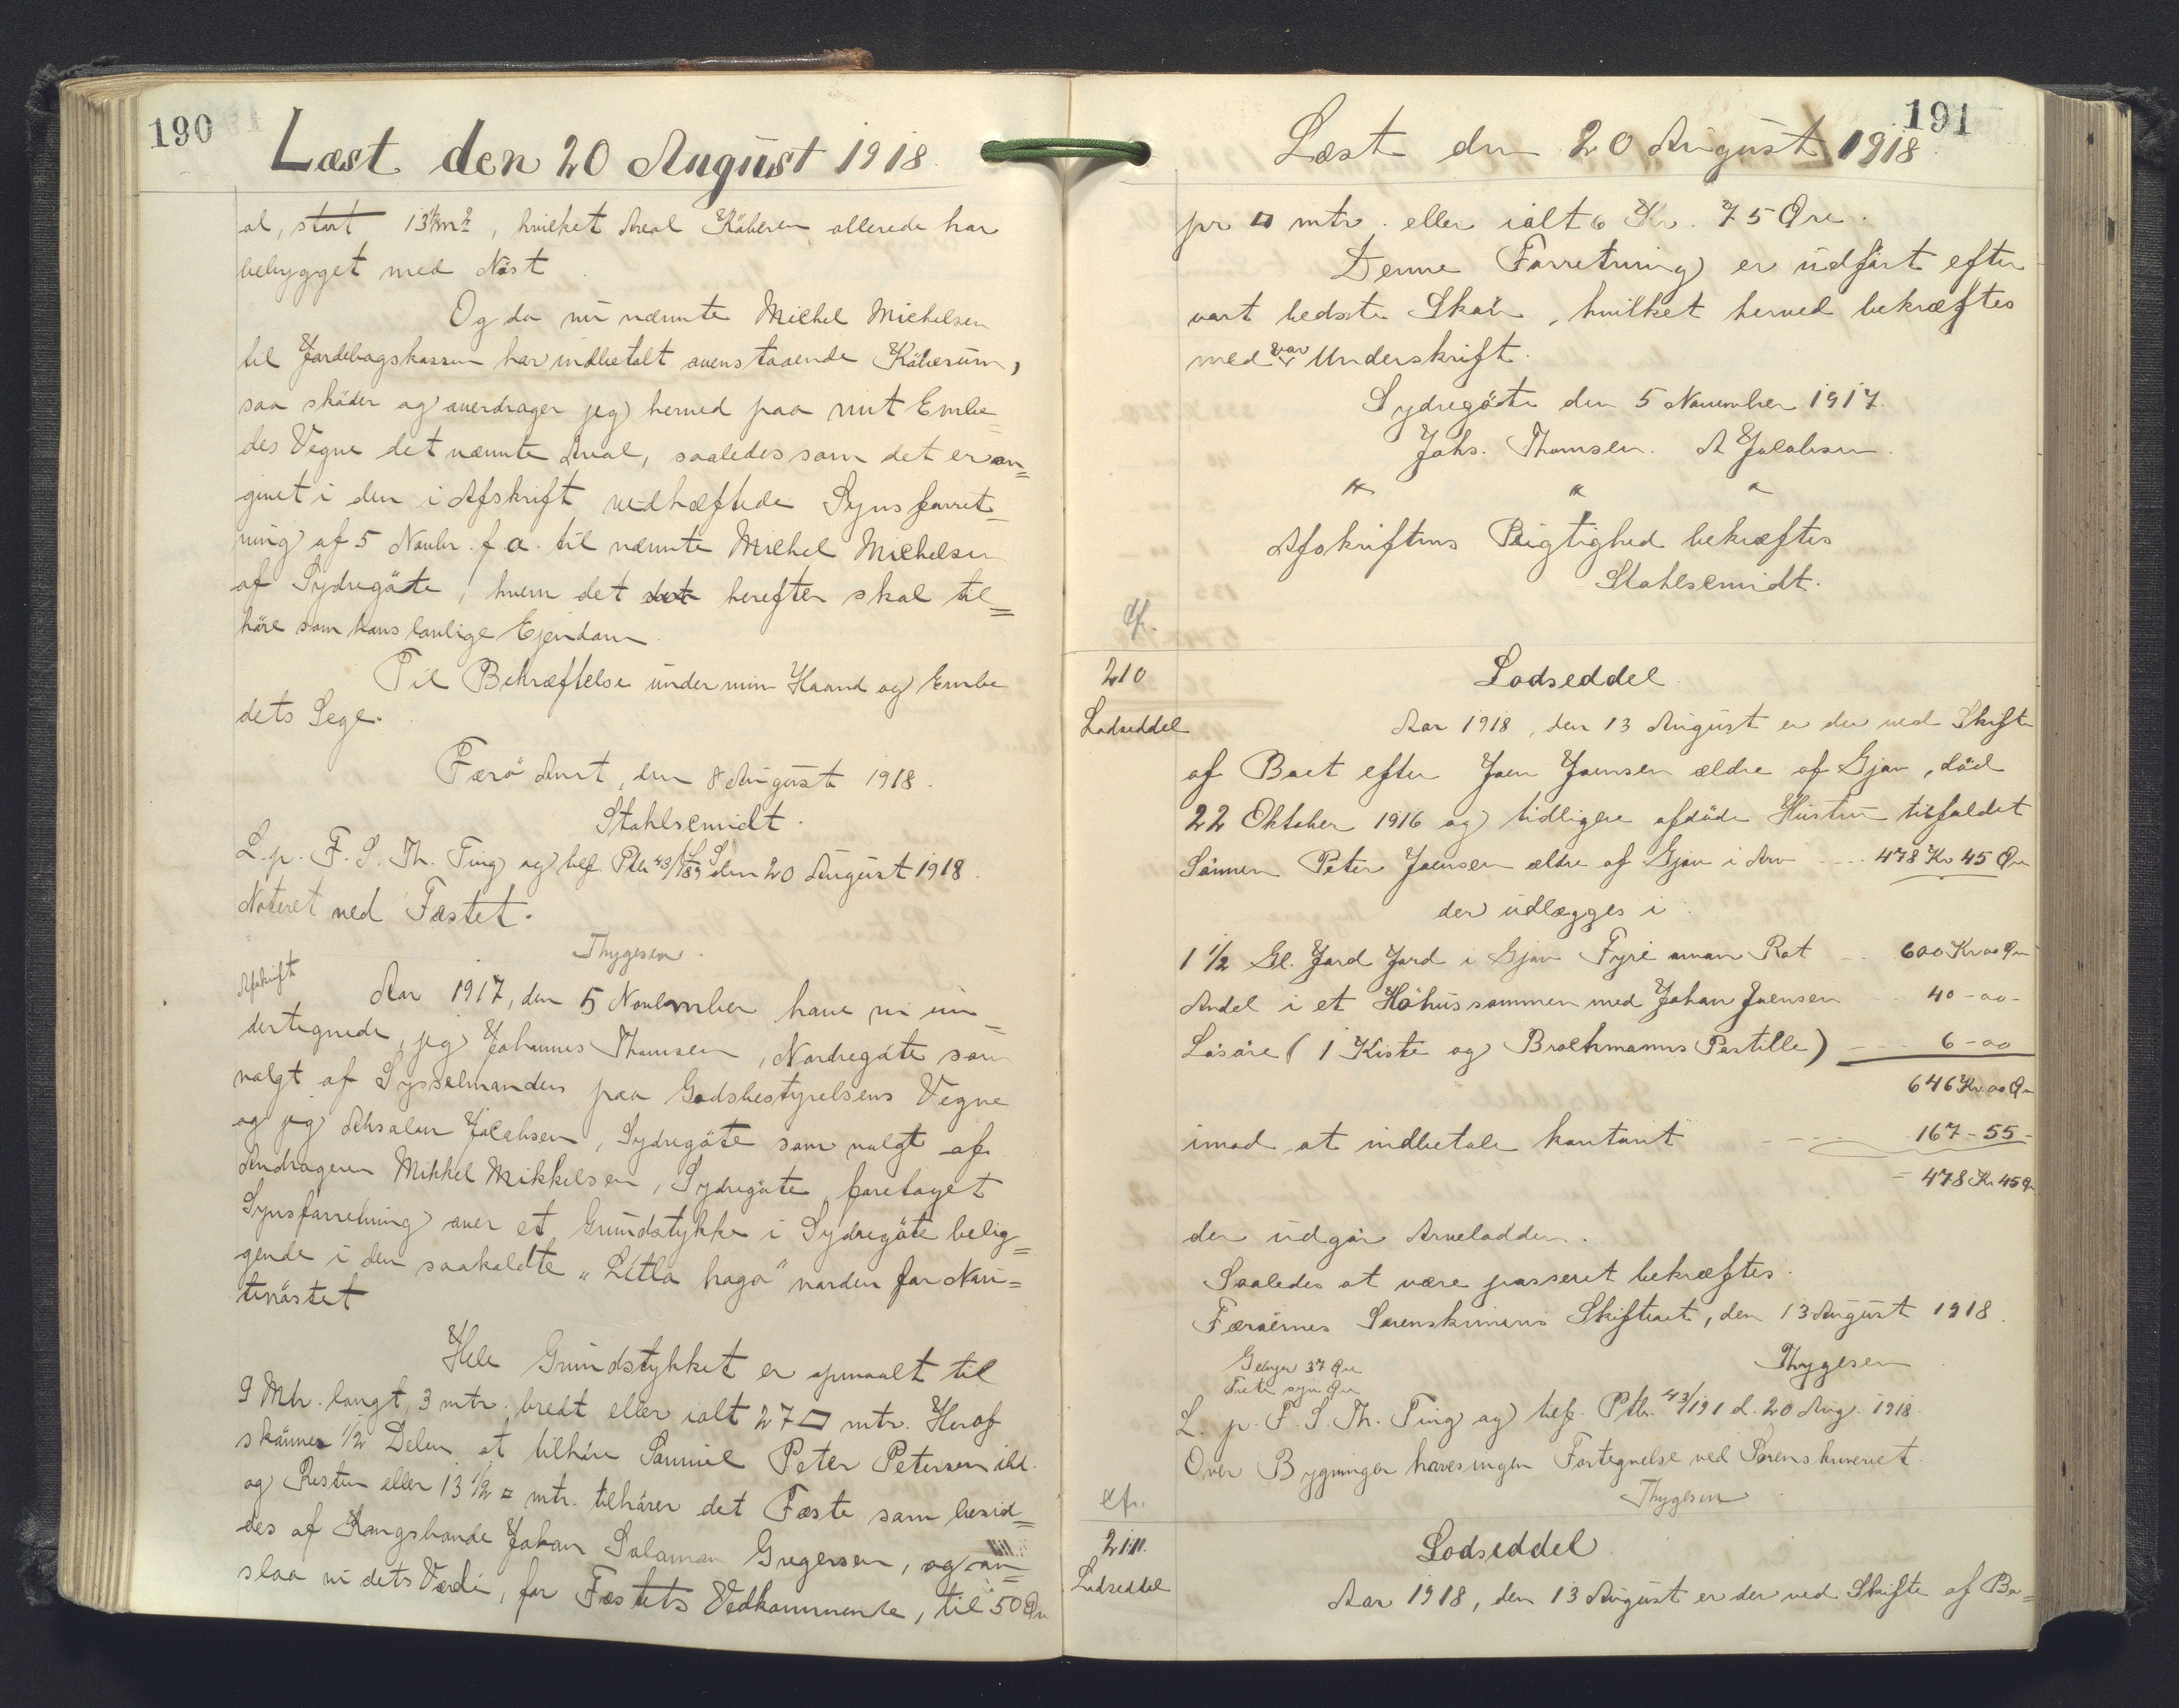 190
Læst den 20 August 1918.
al, stort 13½m², hvilket Areal Köberen allerede har
bebygget med Nöst.
Og da nu nævnte Michel Michelsen
til Jordebogskassen har indbetalt ovenstaaende Köbesum,
saa sköder og overdrager jeg herved paa mit Embe=
des Vegne det nævnte Areal, saaledes som det er an=
givet i den i Afskrift vedhæftede Synsforret=
ning af 5 Novbr. f.a. til nævnte Michel Michelsen
af Sydregöte, hvem det herefter skal til=
höre som hans lovlige Ejendom.
Til Bekræftelse under min Haand og Embe
dets Segl.
Færö Amt, den 8 August 1918.
Stahlscmidt.
(L.S.)
L. p. F. S. Th. Ting og bef. Ptb. 43/189 den 20 August 1918.
Noteret ved Fæstet.
Thygesen.
Afskrift
Aar 1917, den 5 November have vi un=
dertegnede, jeg Johannes Thomsen, Nordregöte som
valgt af Sysselmanden paa Godsbestyrelsens Vegne
og jeg Absalon Jacobsen, Sydregöte som valgt af
Andrageren Mikkel Mikkelsen, Sydregöte, foretaget
Synsforretning over et Grundstykke i Sydregöte belig=
gende i den saakaldte "Litla haga" norden for Nau=
stnöstet
Hele Grundstykket er opmaalt til
9 Mtr. langt, 3 mtr. bredt eller ialt 27 □ mtr. Heraf
skönnes 1/2 Delen at tilhöre Samuel Peter Petersen ibd.
og Resten eller 13 1/2 □ mtr. tilhörer det Fæste som besid=
des af Kongsbonde Johan Salomon Gregersen, og an=
slaa vi dets Værdi, for Fæstets Vedkommende, til 50 Øre
191
Læst den 20 August 1918.
pr □ mtr. eller ialt 6 Kr. 75 Øre.
Denne Forretning er udfört efter
vort bedste Skön, hvilket herved bekræftes
med vor Underskrift.
Sydregöte den 5 November 1917.
Johs. Thomsen. A Jacobsen.
" " "
Afskriftens Rigtighed bekræftes
Stahlscmidt.
cfr.
210
Lodseddel
Lodseddel
Aar 1918, den 13 August er der ved Skifte
af Boet efter Joen Joensen ældre af Gjov, död
22 Oktober 1916 og tidligere afdöde Hustru tilfaldet
Sönnen Peter Joensen ældre af Gjov i Arv - - - 478 Kr 45 Øre
der udlægges i
1 1/2 Gl. Jord Jord i Gjov Fyri uvan Rot - - 600 Kr 00 Øre
Andel i et Höhus sammen med Johan Joensen - - 40 - 00 -
Lösöre (1 Kiste og Brochmanns Postille) - - - 6 - 00
646 Kr. 00 Øre
imod at indbetale kontant - - - - 167 - 55 -
= 478 Kr. 45 Ø
der udgör Arvelodden.
Saaledes at være passeret bekræftes.
Færöernes Sorenskriveris Skifteret, den 13 August 1918.
Gebyr 37 Øre
Thygesen
L. p. F. S. Th. Ting og bef. Ptb. 43/191 d. 20 Aug. 1918.
Over Bygninger haves ingen Fortegnelse ved Sorenskriveriet.
Thygesen
cfr.
211.
Lodseddel
Lodseddel
Aar 1918, den 13 August er der ved Skifte af Bo=